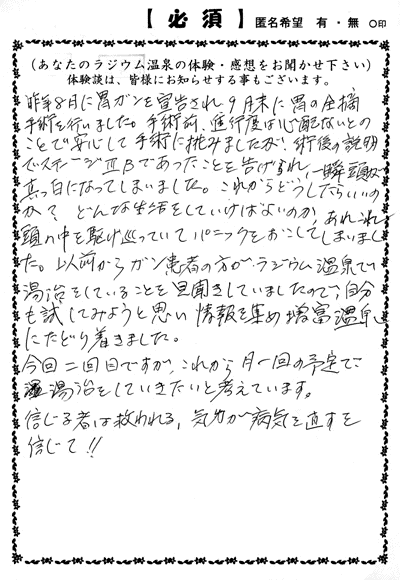 【必須】 匿名希望 有・無 ○印
(あなたのラジウム温泉の体験・感想をお聞かせ下さい)
体験談は、皆様にお知らせする事もございます。
昨年8月に胃ガンを宣告され9月末に胃の全摘
手術を行いました。手術前、進行度は心配ないとの
ことで安心して手術に挑みましたが、術後の説明
でステージⅢBであったことを告げられ、一瞬頭が
真っ白になってしまいました。これからどうしたらいいの
か？どんな生活をしていけばよいのか、あれこれ
頭の中を駆け巡っていてパニックをおこしてしまいまし
た。以前からガン患者の方が、ラジウム温泉で
湯治をしていることを見聞きしていましたので、自分
も試してみようと思い情報を集め増富温泉
にたどり着きました。
今回二回目ですが、これから月一回の予定で、
湯治をしていきたいと考えています。
信じる者は救われる、気力が病気を直すを
信じて!!